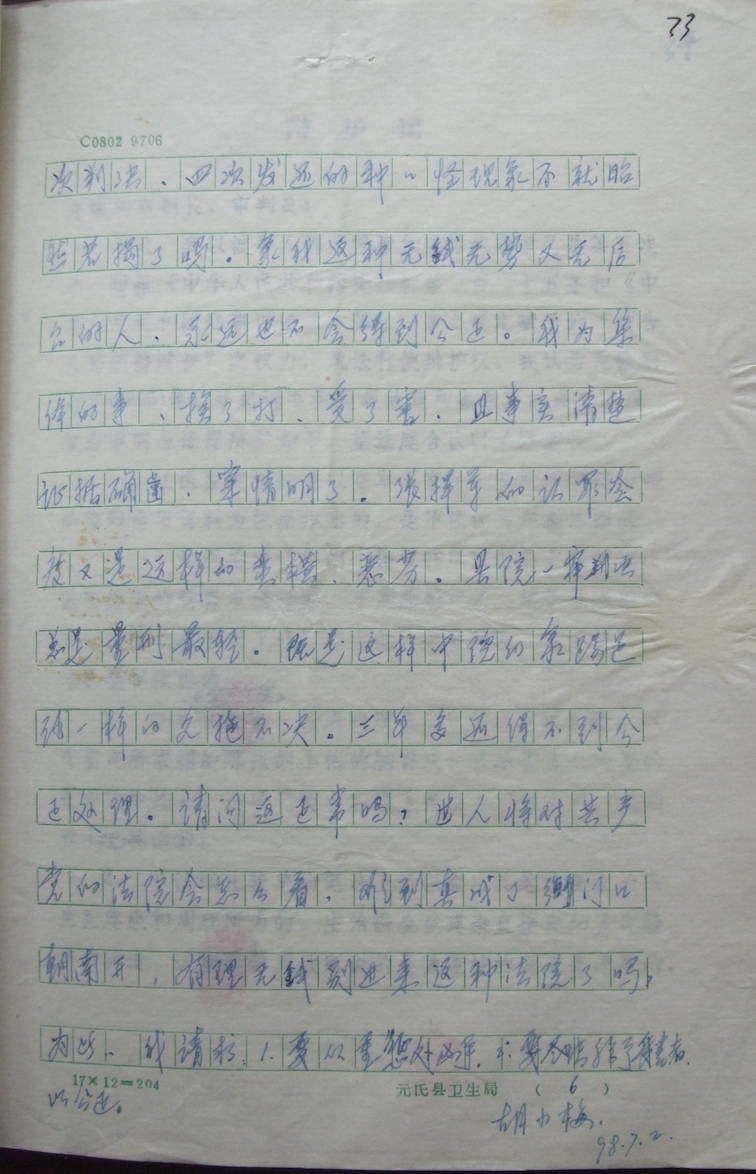 73
C0802 9706
次判决、四次发还的种々怪现象不就昭
然若揭了吗。象我这种无钱无势又无后
台的人、永远也不会得到公正。我为集
体的事、挨了打、受了害、且事实清楚
证据确凿、案情明了。张 的认罪态
度又是这样的蛮横、恶劣。县院一审判决
总是量刑最轻。既是这样中院的
一样的久拖不决。三年多还得不到公
正处理。请问这正常吗?世人将对共产
党的法院会怎么看。难到真成了衙门口
朝南开,有理无钱别进来这种法院了吗?
为此、我请求:1.要从重 处 、2. 给予受害者
以公正。
17×12=204
元氏县卫生局 ( 6 )
胡小梅.
98.7.2.